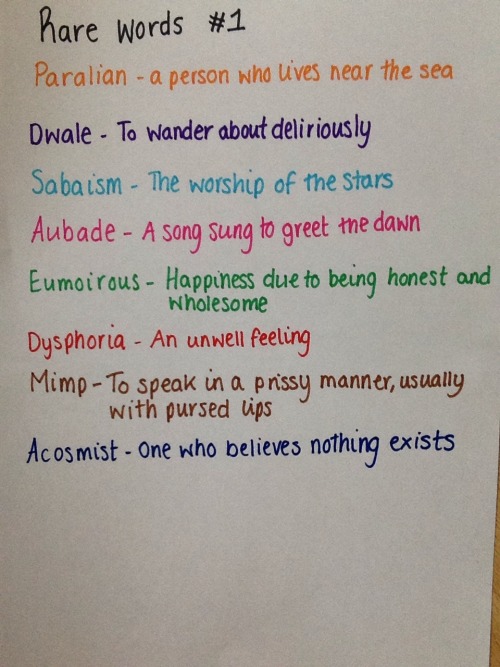 Rare Words #1
Paralian - a person who lives near the sea
Dwale - To wander about deliriously
Sabaism - The worship of the stars
Aubade - A song sung to greet the dawn
Eumoirous - Happiness due to being honest and
wholesome
Dysphoria - An unwell feeling
Mimp - To speak in a prissy manner, usually
with pursed lips
Acosmist - One who believes nothing exists